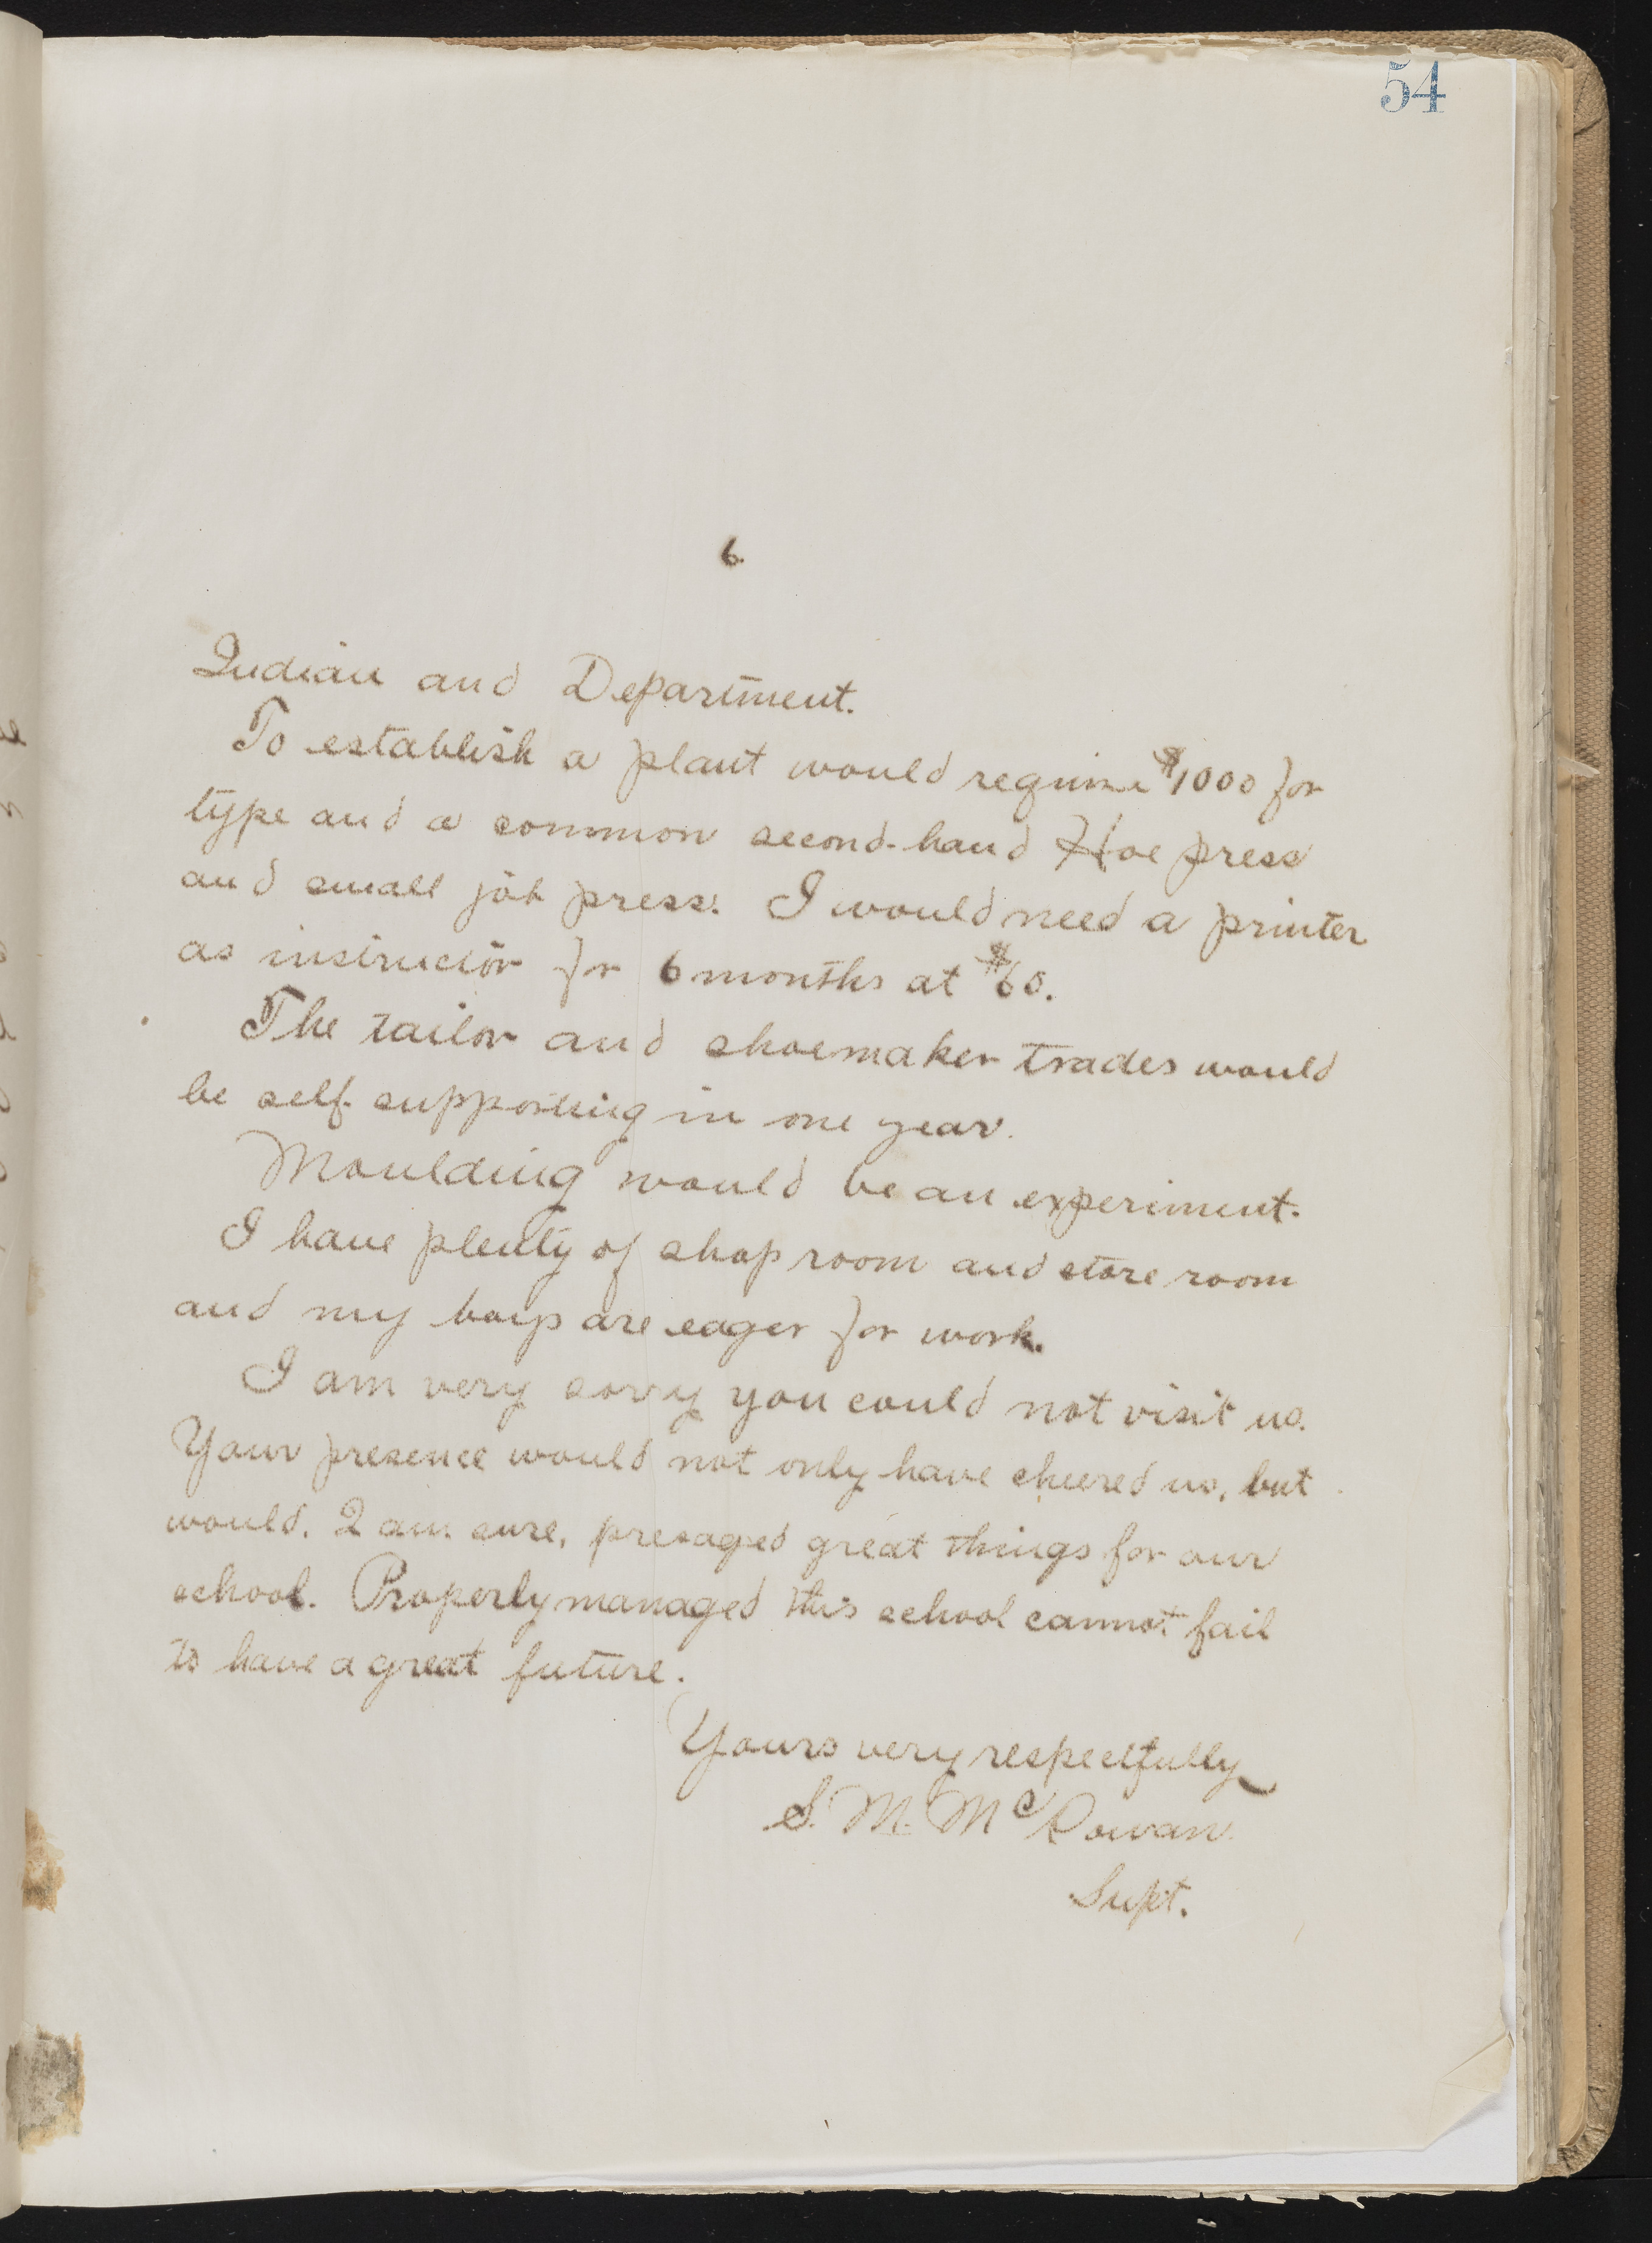 54
6.
Indian and Department.
To establish a plant would require $1000 for
type and a common second-hand Hoe press
and small job press. I would need a printer
as instructor for 6 months at $60.
The tailor and shoemaker trades would
be self-supporting in one year.
Moulding would be an experiment.
I have plenty of shop room and store room
and my boys are eager for work.
I am very sorry you could not visit us.
Your presence would not only have cheered us, but
would, I am sure, presaged great things for our
school. Properly managed this school cannot fail
to have a great future.
Yours very respectfully
S. M. McCowan.
Supt.